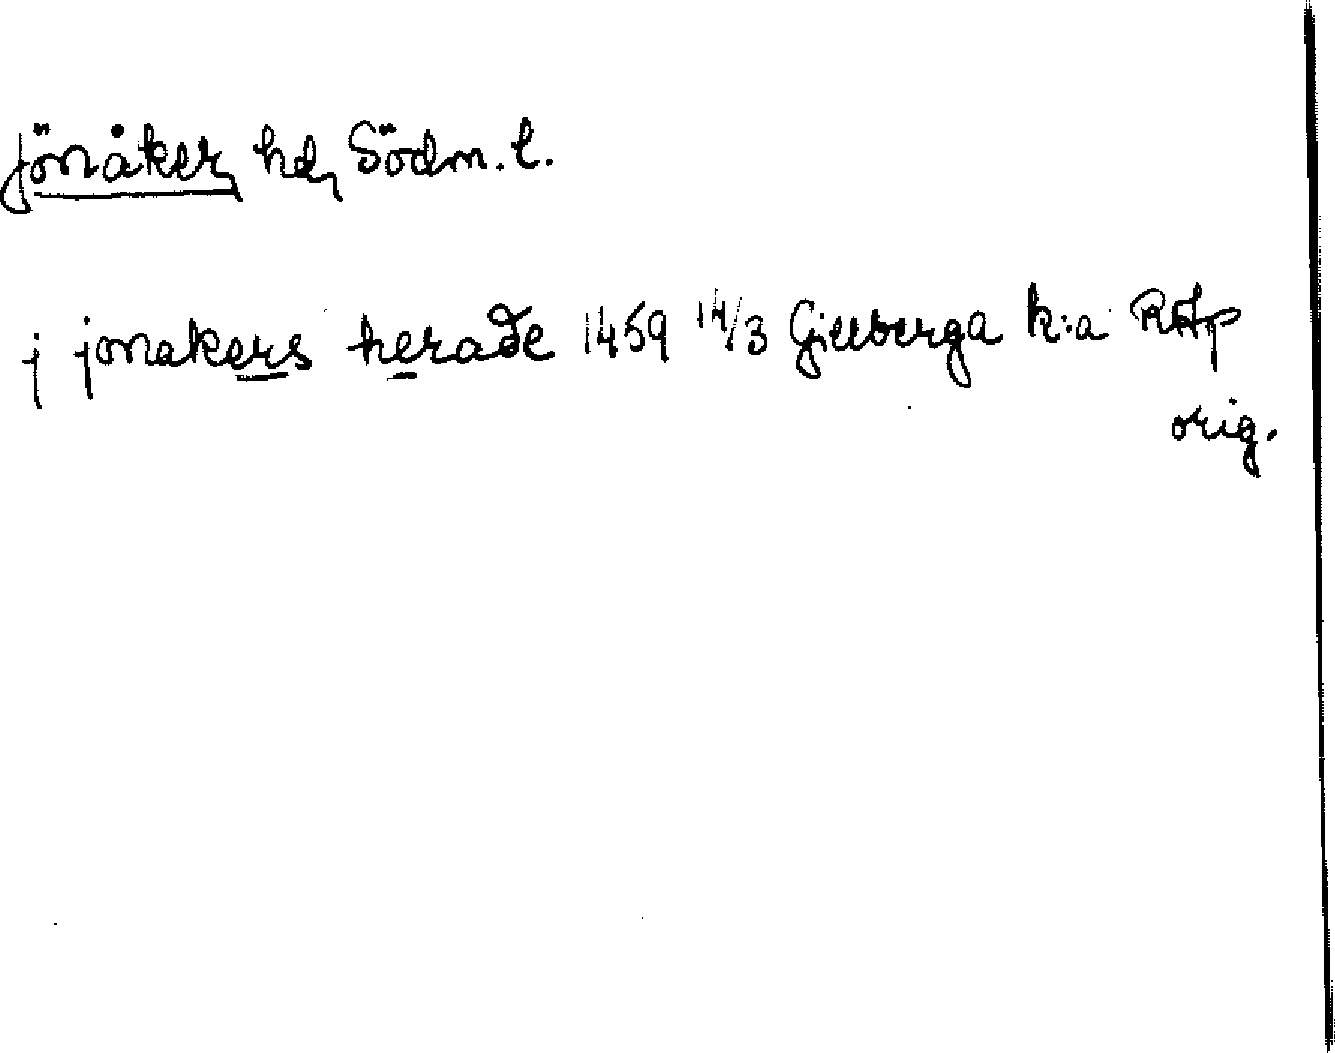 Jönåker, hd, Södm. l.
j jonakers heraðe 1459 14/3 Gillberga k:a RAp
orig.